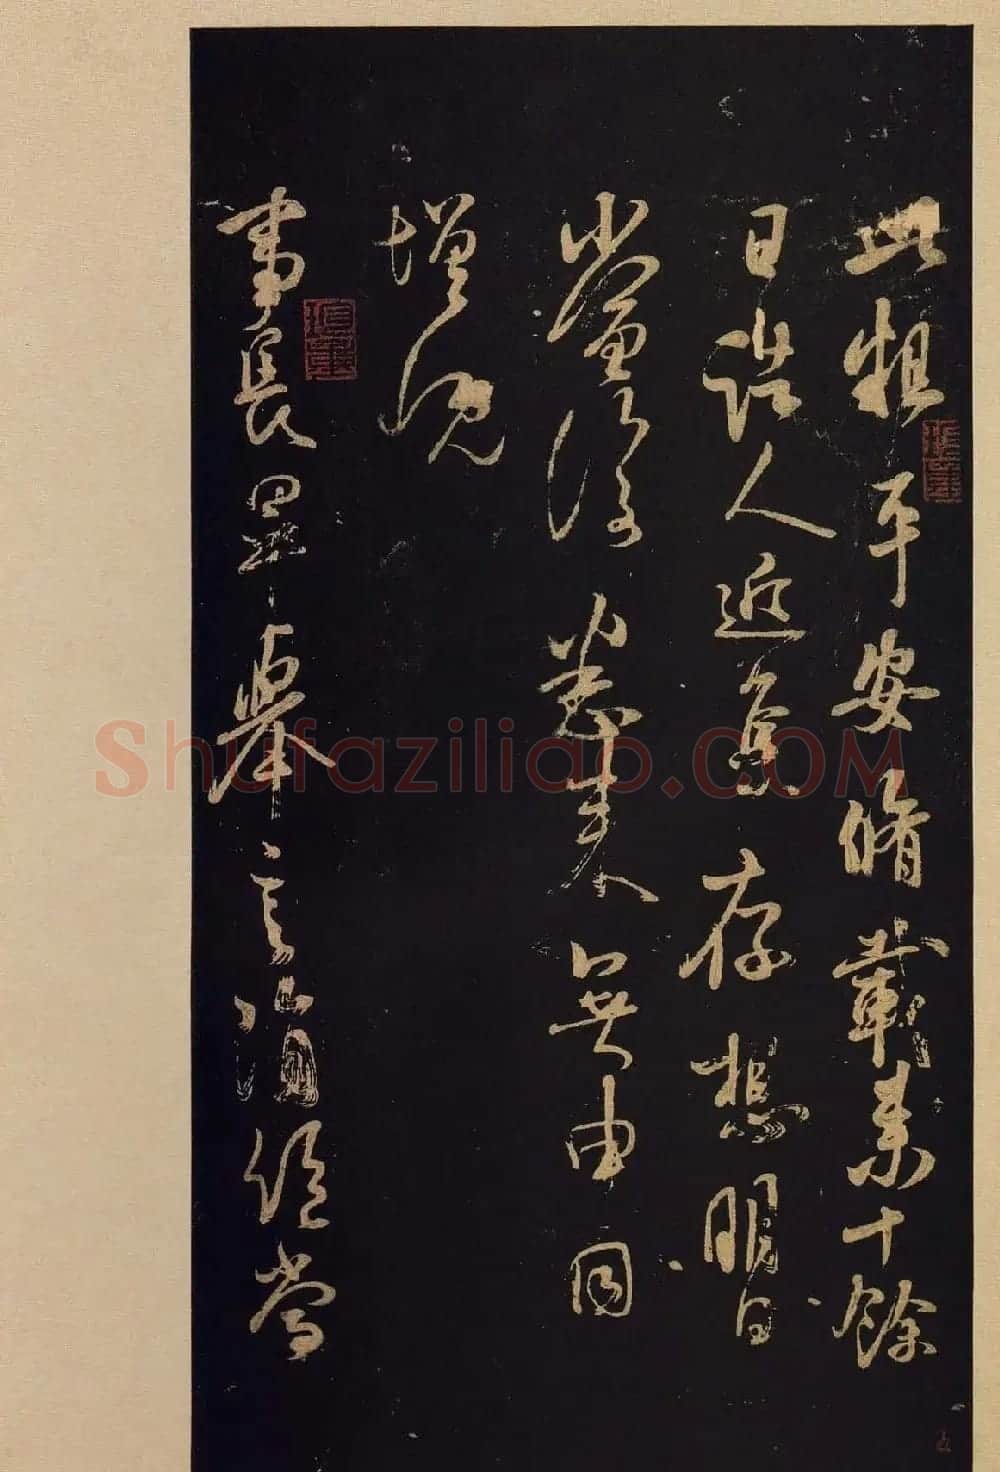 此粗平安脩載來十餘
日諸人近集存想明日
當復悉來無由同
增慨
事
Shufaziliao.COM